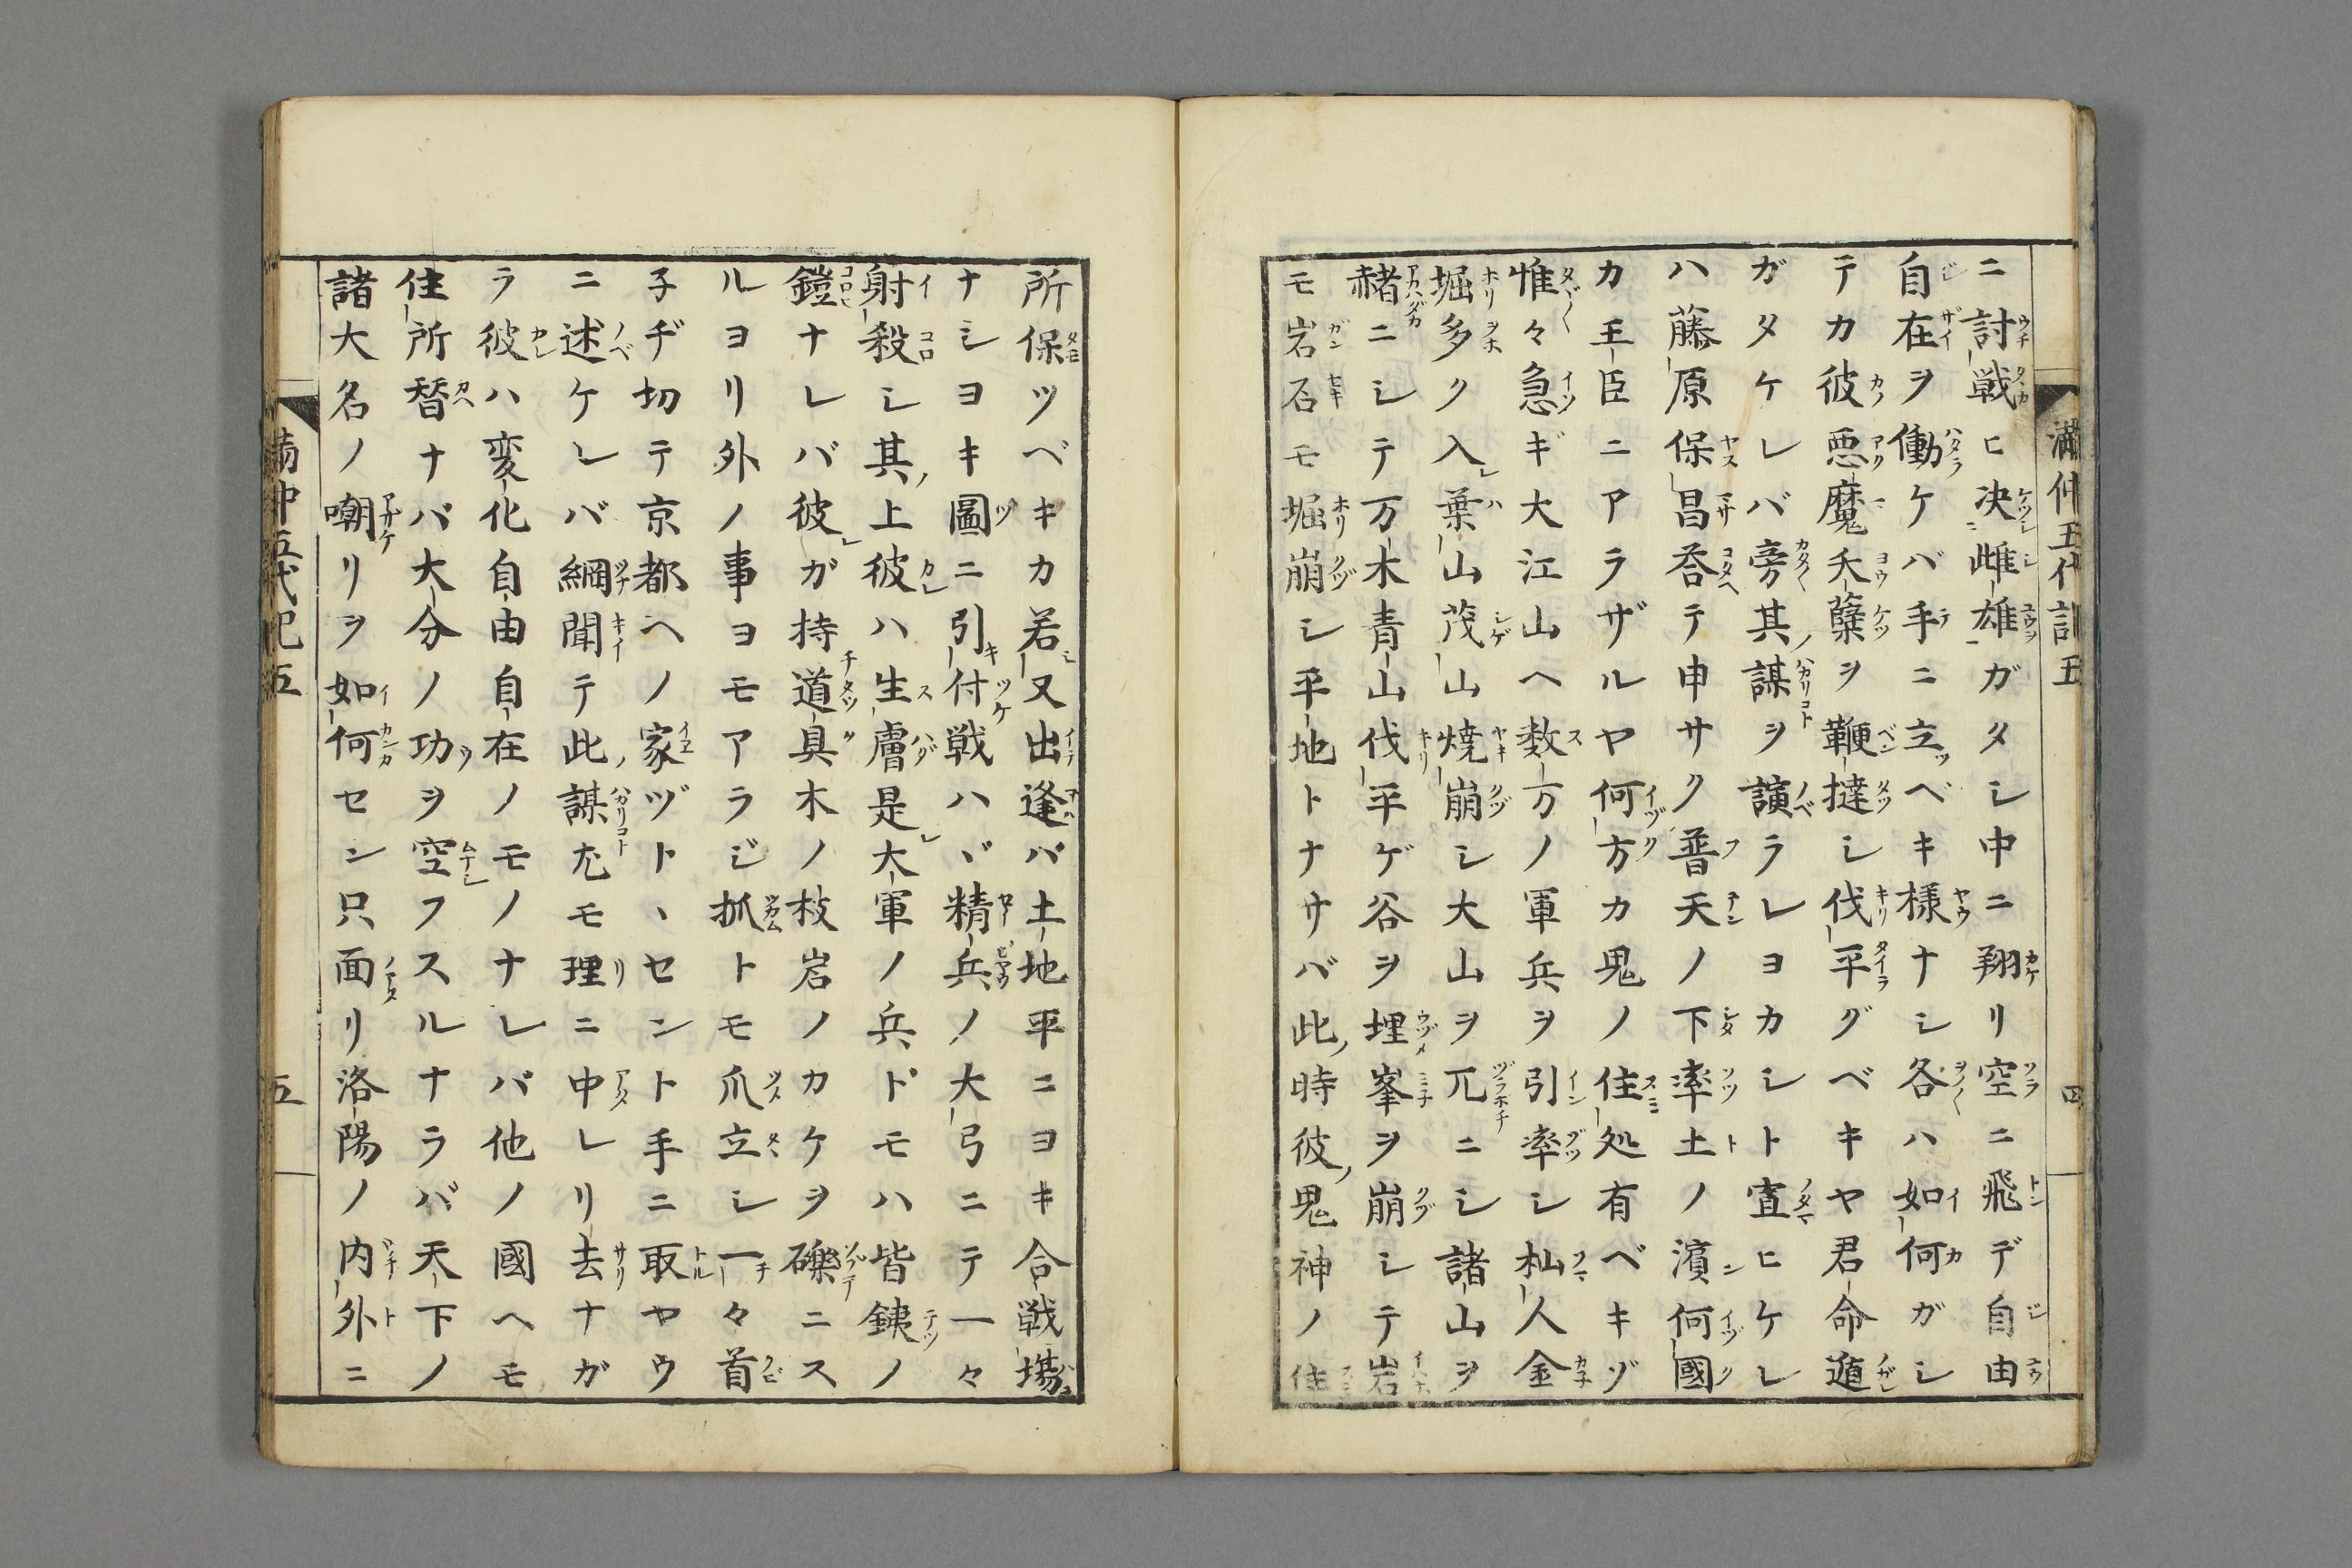 ニ討戦ヒ决雌雄ガタシ中ニ翔リ空ニ飛デ自由
自在ヲ働ケバ手ニ立ベキ様ナシ各ハ如何ガシ
テカ彼悪魔夭蘖ヲ鞭撻シ伐平グベキヤ君命遁
ガタケレバ旁其謀ヲ演ラレヨカシト宣ヒケレ
ハ藤原保昌荅テ申サク普天ノ下率土ノ濱何國
カ王臣ニアラザルヤ何方カ鬼ノ住処有ベキゾ
惟々急ギ大江山ヘ数万ノ軍兵ヲ引率シ杣人金
堀多ク入葉山茂山焼崩シ大山ヲ兀ニシ諸山ヲ
赭ニシテ万木青山伐平ゲ谷ヲ埋峯ヲ崩シテ岩
モ岩石モ堀崩シ平地トナサバ此時彼鬼神ノ住
満仲五代記五
四
所保ツベキカ若又出逢バ土地平ニヨキ合戦塲
ナシヨキ圖ニ引付戦ハヾ精兵ノ大弓ニテ一々
射殺シ其上彼ハ生膚是大軍ノ兵ドモハ皆銕ノ
鎧ナレバ彼ガ持道具木ノ枝岩ノカケヲ礫ニス
ルヨリ外ノ事ヨモアラジ抓トモ爪立シ一々首
子ヂ切テ京都ヘノ家ヅトヽセント手ニ取ヤウ
ニ述ケレバ綱聞テ此謀尤モ理ニ中レリ去ナガ
ラ彼ハ変化自由自在ノモノナレバ他ノ國ヘモ
住所替ナバ大分ノ功ヲ空フスルナラバ天下ノ
諸大名ノ嘲リヲ如何セン只面リ洛陽ノ内外ニ
満仲五代記五
五